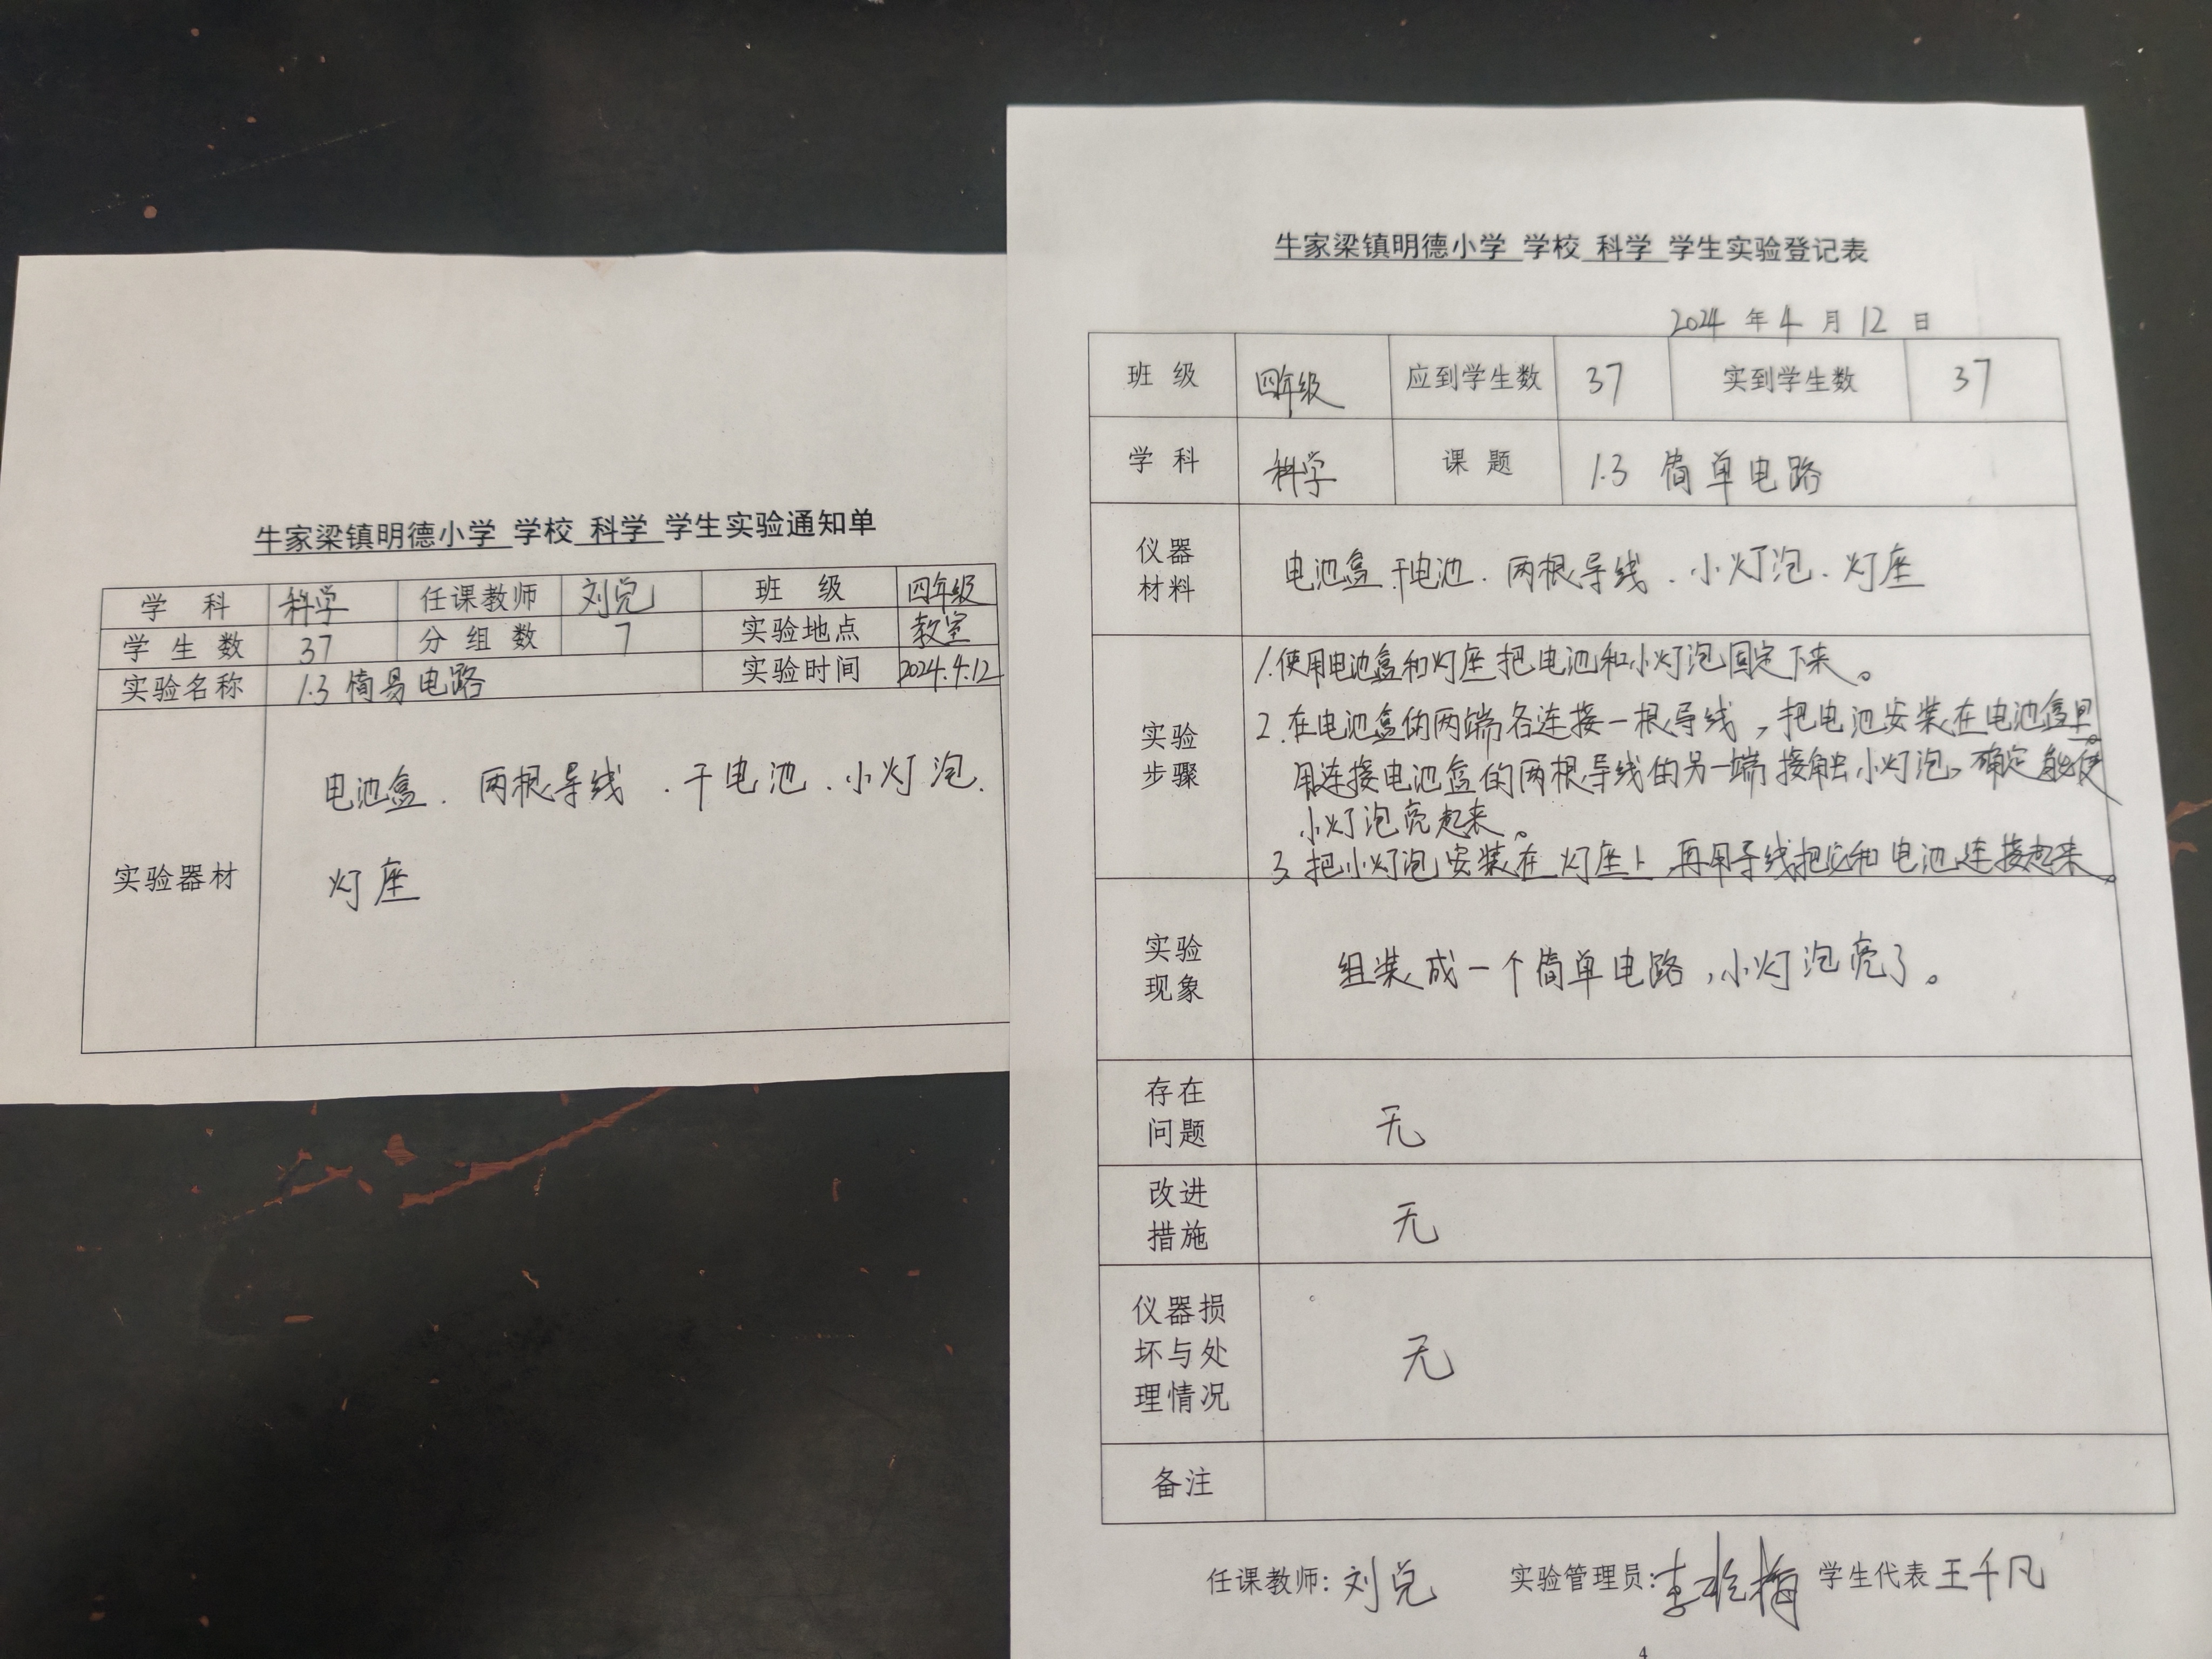 牛家梁镇明德小学 学校 科学 学生实验通知单
学 科 科学 任课教师 刘兑 班 级 四年级
学 生 数 37 分 组 数 7 实验地点 教室
实验名称 1.3 简易电路 实验时间 2024.4.12
实验器材
电池盒、两根导线、干电池、小灯泡、
灯座
牛家梁镇明德小学 学校 科学 学生实验登记表
2024 年 4 月 12 日
班 级 四年级 应到学生数 37 实到学生数 37
学 科 科学 课 题 1.3 简单电路
仪器
材料
电池盒、干电池、两根导线、小灯泡、灯座
实验
步骤
1.使用电池盒和灯座把电池和小灯泡固定下来。
2.在电池盒的两端各连接一根导线，把电池安装在电池盒里。
用连接电池盒的两根导线的另一端接触小灯泡，确定能使
小灯泡亮起来。
3.把小灯泡安装在灯座上，再用导线把它和电池连接起来。
实验
现象
组装成一个简单电路，小灯泡亮了。
存在
问题
无
改进
措施
无
仪器损
坏与处
理情况
无
备注
任课教师：刘兑 实验管理员： 学生代表 王千凡
4